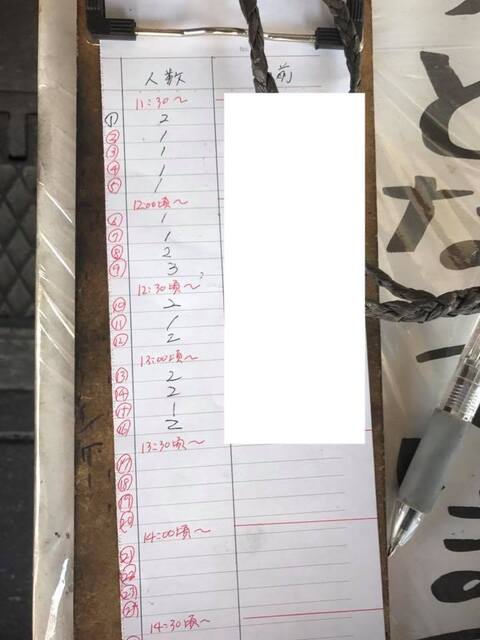 人数 前
11:30〜
① 2
② 1
③ 1
④ 1
⑤ 1
12:00頃〜
⑥ 1
⑦ 1
⑧ 2
⑨ 3
12:30頃〜
⑩ 2
⑪ 1
⑫ 2
13:00頃〜
⑬ 2
⑭ 2
⑮ 1
⑯ 2
13:30頃〜
⑰
⑱
⑲
⑳
14:00頃〜
㉑
㉒
㉓
㉔
14:30頃〜
と
な
の